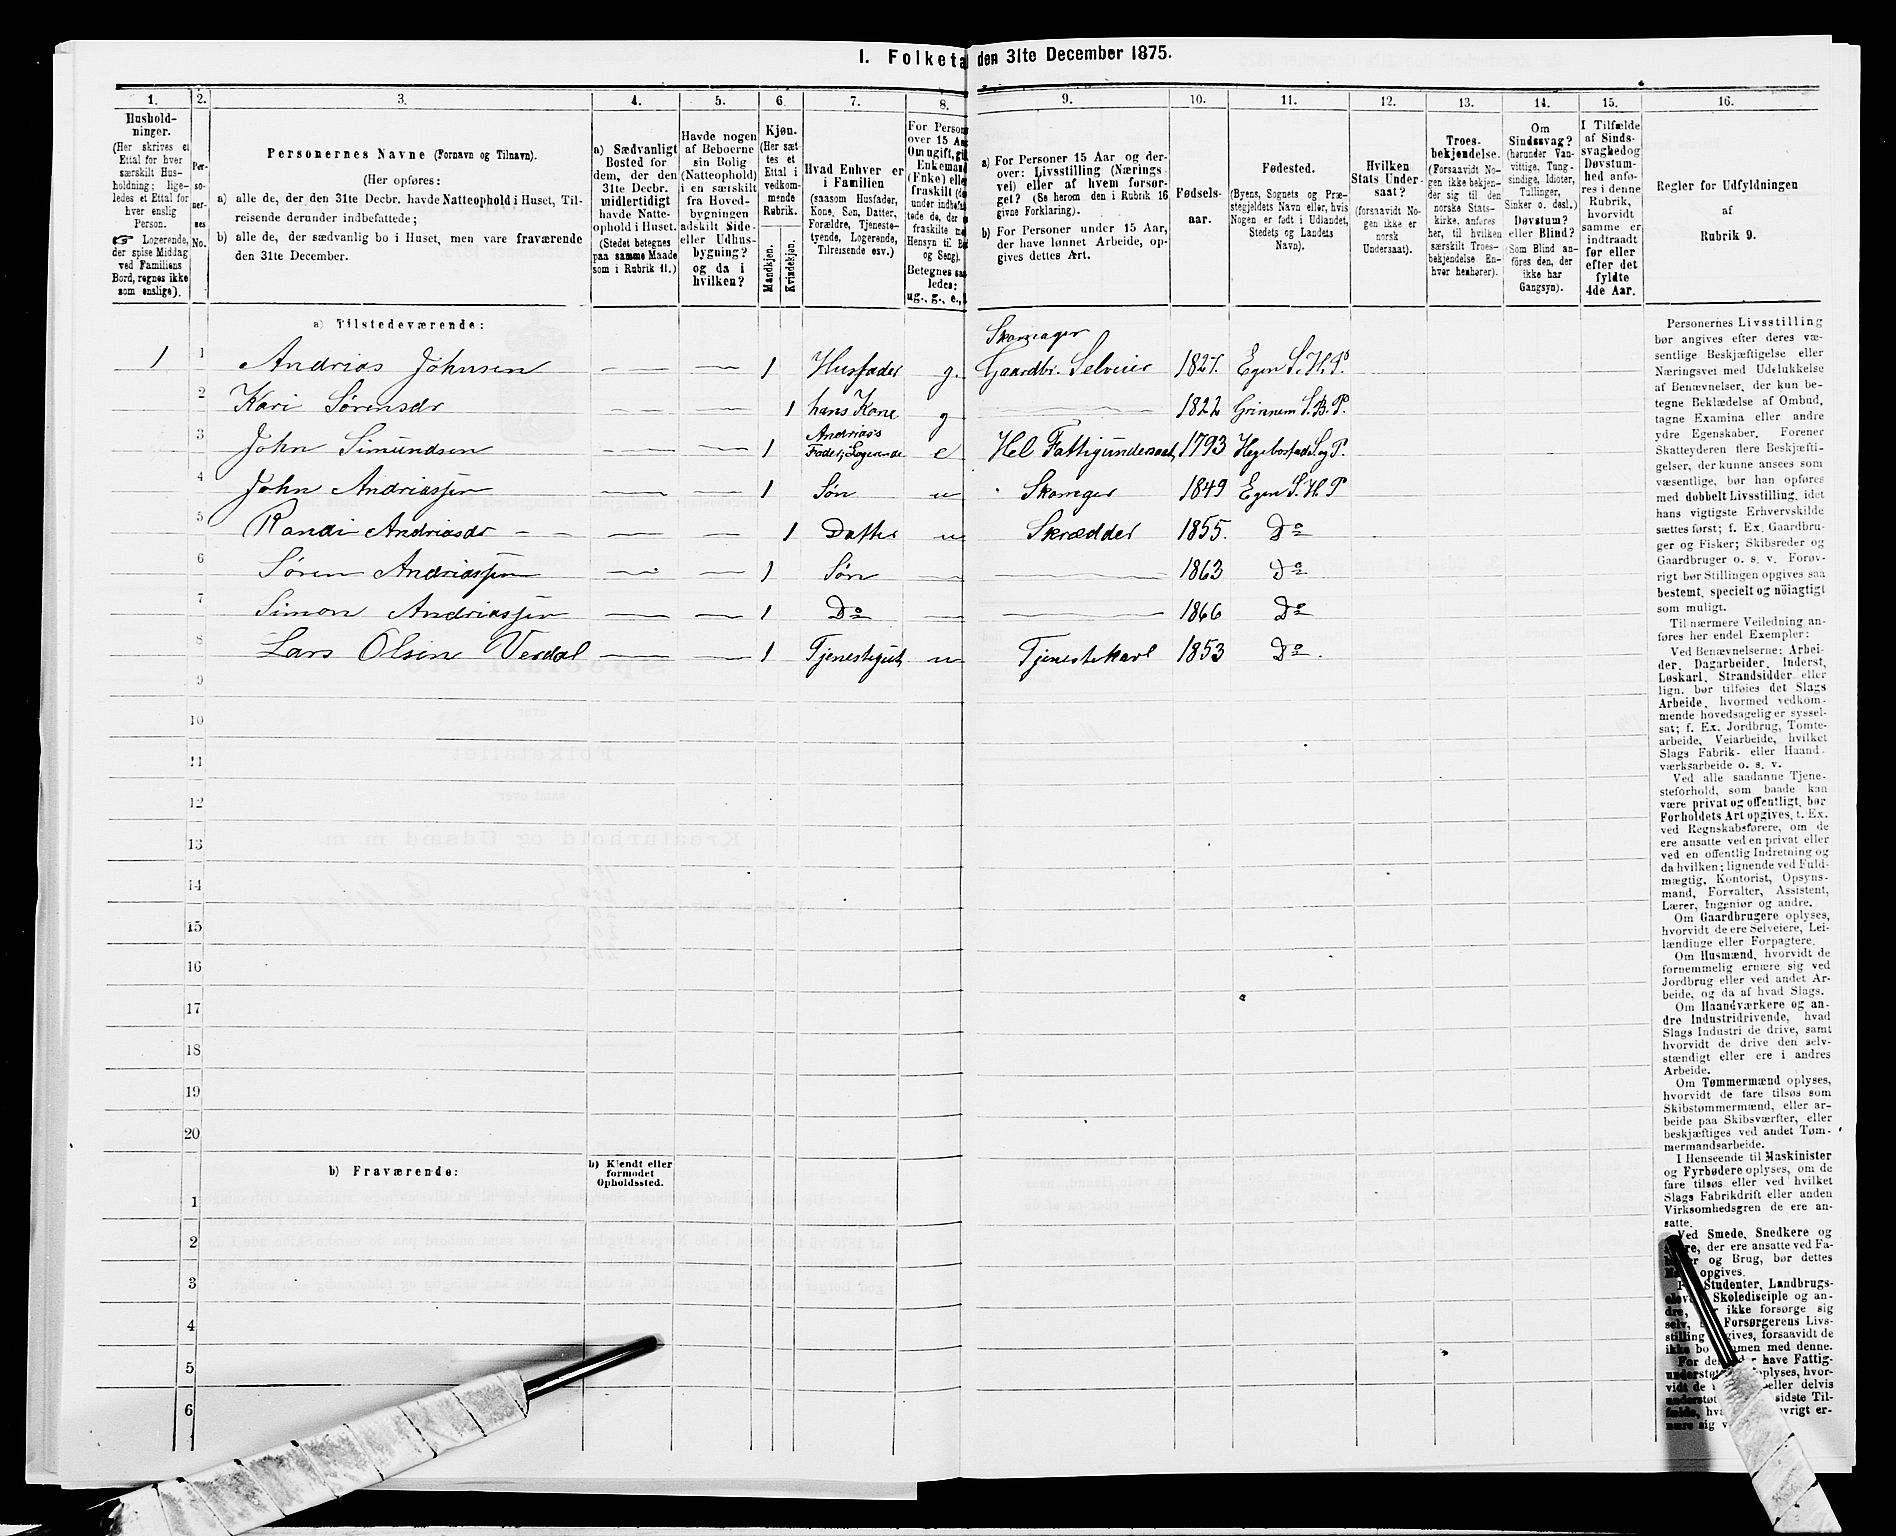 1. Folketa den 31te December 1875.
1. 2. 3. 4. 5. 6. 7. 8. 9. 10. 11. 12. 13. 14. 15. 16.
Hushold-
ninger.
(Her skrives et
Ettal for hver
særskilt Hus-
holdning; lige-
ledes et Ettal for
hver enslig
Person.
☞ Logerende,
der spise Middag
ved Familiens
Bord, regnes ikke
som enslige).
Per-
so-
ner-
nes
No.
Personernes Navne (Fornavn og Tilnavn).
(Her opføres:
a) alle de, der den 31te Decbr. havde Natteophold i Huset, Til-
reisende derunder indbefattede;
b) alle de, der sædvanlig bo i Huset, men vare fraværende
den 31te December.
a) Sædvanligt
Bosted for
dem, der den
31te Decbr.
midlertidigt
havde Natte-
ophold i Huset.
(Stedet betegnes
paa samme Maade
som i Rubrik 11.)
Havde nogen
af Beboerne
sin Bolig
(Natteophold)
i en særskilt
fra Hoved-
bygningen
adskilt Side-
eller Udhus-
bygning?
og da i
hvilken?
Kjøn.
(Her sæt-
tes et
Ettal i
vedkom-
mende
Rubrik.
Mandkjøn.
Kvindekjøn.
Hvad Enhver er
i Familien
(saasom Husfader,
Kone, Søn, Datter,
Forældre, Tjeneste-
tyende, Logerende,
Tilreisende osv.)
For Person
over 15 Aa
Om ugift, gif
Enkemand
(Enke) elle
fraskilt (de
under indbefat
tede de, der e
fraskilte m
Hensyn til B
og Seng).
Betegnes saa
ledes:
ug., g., e.,
a) For Personer 15 Aar og der-
over: Livsstilling (Nærings-
vei) eller af hvem forsør-
get? (Se herom den i Rubrik 16
givne Forklaring).
b) For Personer under 15 Aar,
der have lønnet Arbeide, op-
gives dettes Art.
Fødsels-
aar.
Fødested.
(Byens, Sognets og Præ-
stegjeldets Navn eller, hvis
Nogen er født i Udlandet,
Stedets og Landets
Navn).
Hvilken
Stats Under-
saat?
(forsaavidt No-
gen ikke er
norsk
Undersaat).
Troes-
bekjendelse.
(Forsaavidt No-
gen ikke bekjen-
der sig til den
norske Stats-
kirke, anføres
her, til hvilken
særskilt Troes-
bekjendelse En-
hver henhører).
Om
Sindssvag?
(herunder Van-
vittige, Tung-
sindige, Idioter,
Tullinger,
Sinker o. desl.)
Døvstum?
eller Blind?
(Som Blind an-
føres den, der
ikke har
Gangsyn).
I Tilfælde
af Sinds-
svaghed og
Døvstum-
hed anfø-
res i denne
Rubrik,
hvorvidt
samme er
indtraadt
før eller
efter det
fyldte
4de Aar.
Regler for Udfyldningen
af
Rubrik 9.
a) Tilstedeværende:
Skomager
1 1 Andrias Johnsen 1 Husfader g. Gaardbr. Selveier 1827. Egen S. H. P.
2 Kari Sørensdr 1 hans Kone g 1822 Grinnem S. B. P.
3 John Simundsen 1 Andrias's Fader, Logerende e Hel Fattigunderstøt 1793 Hegebostad S. og P.
4 John Andriassen 1 Søn u Skomager 1849 Egen S. H. P
5 Randi Andriasdr 1 Datter u Skrædder 1855. Do
6 Søren Andriassen 1 Søn 1863 Do
7 Simon Andriassen 1 Do 1866 Do
8 Lars Olsen Verdal 1 Tjenestegut u Tjenestekarl 1853 Do
9
10
11
12
13
14
15
16
17
18
19
20
b) Fraværende:
b) Kjendt eller
formodet
Opholdssted.
1
2
3
4
5
6
Personernes Livsstilling
bør angives efter deres væ-
sentlige Beskjæftigelse eller
Næringsvei med Udelukkelse
af Benævnelser, der kun be-
tegne Beklædelse af Ombud,
tagne Examina eller andre
ydre Egenskaber. Forener
Skatteyderen flere Beskjæfti-
gelser, der kunne ansees som
væsentlige, bør han opføres
med dobbelt Livsstilling, idet
hans vigtigste Erhvervskilde
sættes først; f. Ex. Gaardbru-
ger og Fisker; Skibsreder og
Gaardbruger o. s. v. Forøv-
rigt bør Stillingen opgives saa
bestemt, specielt og nöiagtigt
som muligt.
Til nærmere Veiledning an-
føres her endel Exempler:
Ved Benævnelserne: Arbei-
der, Dagarbeider, Inderst,
Løskarl, Strandsidder eller
lign. bør tilføies det Slags
Arbeide, hvormed vedkom-
mende hovedsagelig er syssel-
sat; f. Ex. Jordbrug, Tomte-
arbeide, Veiarbeide, hvilket
Slags Fabrik- eller Haand-
værksarbeide o. s. v.
Ved alle saadanne Tjene-
steforhold, som baade kan
være privat og offentligt, bør
Forholdets Art opgives, f. Ex.
ved Regnskabsførere, om de
ere ansatte ved en privat eller
ved en offentlig Indretning og
da hvilken; lignende ved Fuld-
mægtig, Kontorist, Opsyns-
mand, Forvalter, Assistent,
Lærer, Ingeniør og andre.
Om Gaardbrugere oplyses,
hvorvidt de ere Selveiere, Lei-
lændinge eller Forpagtere.
Om Husmænd, hvorvidt de
fornemmelig ernære sig ved
Jordbrug eller ved andet Ar-
beide, og da af hvad Slags.
Om Haandværkere og an-
dre Industridrivende, hvad
Slags Industri de drive, samt
hvorvidt de drive den selv-
stændigt eller ere i andres
Arbeide.
Om Tømmermænd oplyses,
hvorvidt de fare tilsøs som
Skibstømmermænd, eller ar-
beide paa Skibsværfter, eller
beskjæftiges ved andet Tøm-
mermandsarbeide.
I Henseende til Maskinister
og Fyrbødere oplyses, om de
fare tilsøs eller ved hvilket
Slags Fabrikdrift eller anden
Virksomhedsgren de ere an-
satte.
Ved Smede, Snedkere og
der ere ansatte ved Fa-
og Brug, bør dettes
opgives.
Studenter, Landbrugs-
elever, Skoledisciple og an-
dre, ikke forsørge sig
selv, Forsørgerens Livs-
stilling gives, forsaavidt de
ikke bo men med denne.
For de have Fattig-
understøt oplyses, hvor-
vidt de eller delvis
understøt sidste Til-
fælde, hv vrigt er-
nære sig